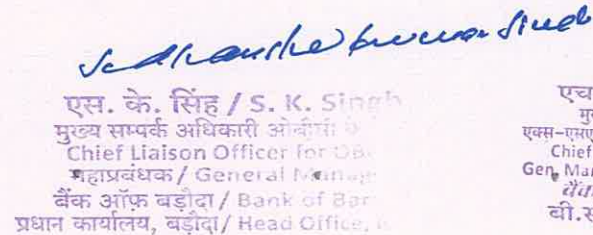 Sudhanshu Kumar Singh
एस. के. सिंह / S. K. Singh
मुख्य सम्पर्क अधिकारी ओबीसी
Chief Liaison Officer for OB
महाप्रबंधक / General Manag
बैंक ऑफ़ बड़ौदा / Bank of Bar
प्रधान कार्यालय, बड़ौदा / Head Office,
एच
मु
एक्स-एसए
Chief
Gen. Ma
बैंक
बी.स